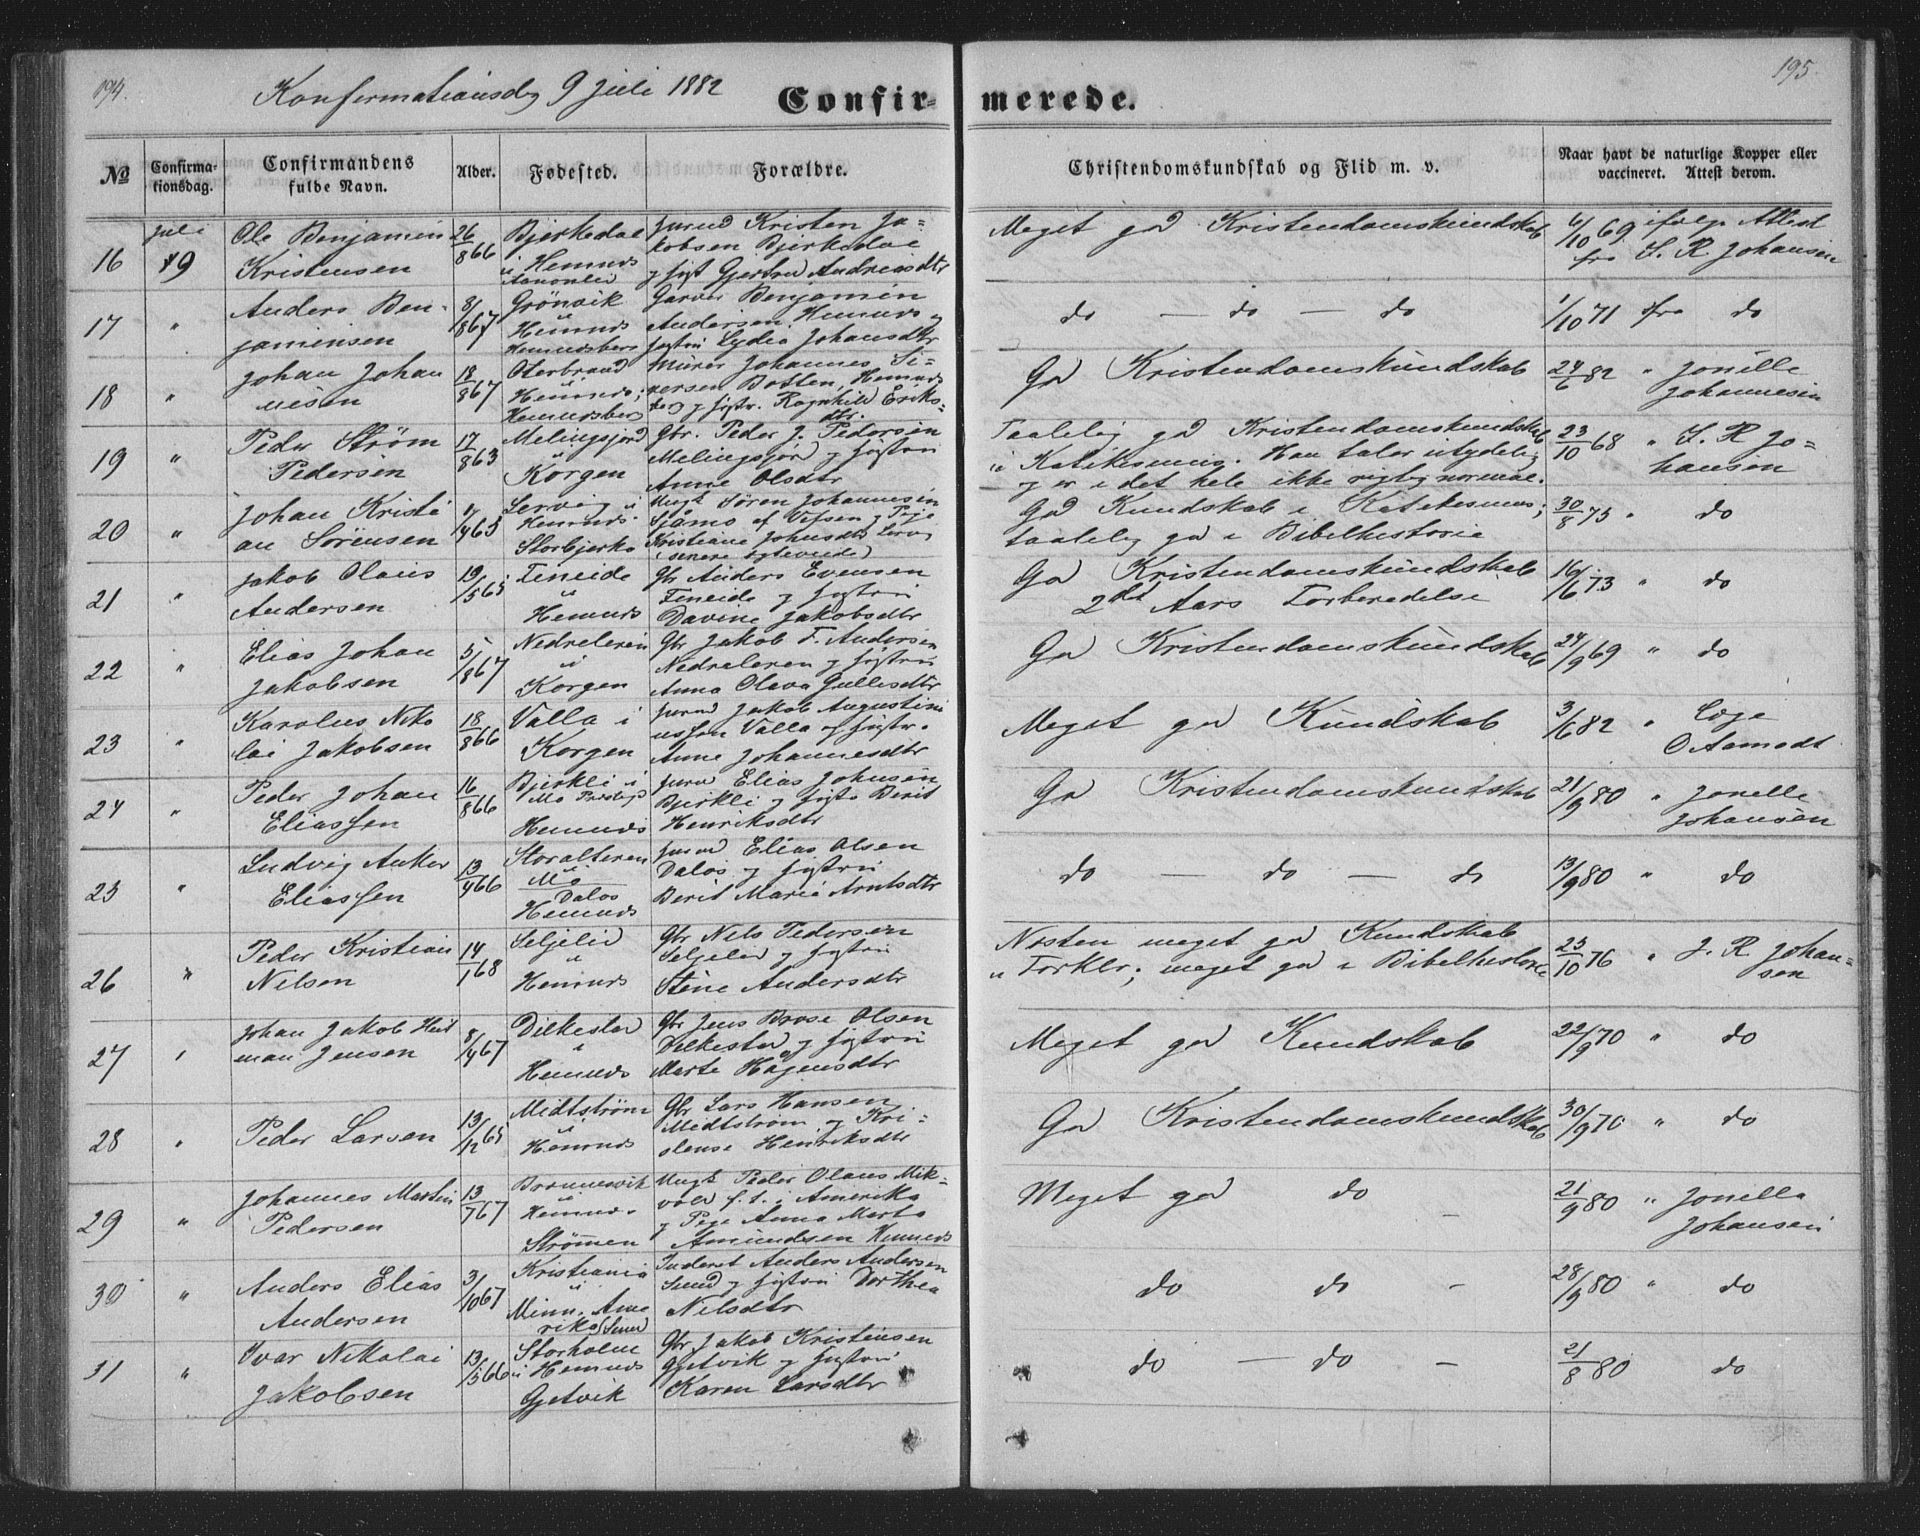 194.
195.
Konfirmationsdg 9 Juli 1882
Confir- merede.
№
Confirma-
tionsdag.
Confirmandens
fulde Navn.
Alder.
Fødested.
Forældre.
Christendomskundskab og Flid m. v.
Naar havt de naturlige Kopper eller
vaccineret. Attest derom.
16 Juli 9
Ole Benjamin
Kristensen
26/8 66
Bjerkedal
i Hemnes
Inrud Kristen Ja-
kobsen Bjerkedal
og Hustr Gjertru Andreasdtr
Meget god Kristendomskundskab
6/10 69 ifølge Attest
fra J. R. Johansen
17 "
Anders Ben-
jaminsen
8/8 67
Grönvik
i Hemnes
Hemnesberg
Garver Benjamin
Andersen Hemnes og
Hustru Lydia Johansdtr
do — do — do
1/10 71 fra do
18 "
Johan Johan
nesen
18/8 67
Oterbrand
Hemnes;
Hemnesberg
Murer Johannes Si-
versen Botten, Hemnes
berg og Hustr. Ragnhild Eriks-
dtr.
God Kristendomskundskab
24/6 82 " Jonelle
Johannesen
19 "
Peder Strøm
Pedersen
17/8 63
Melingsjord
i
Korgen
Gbr. Peder J. Pedersen
Melingsjord og Hustru
Anne Olsdtr
Taalelig god Kristendomskundskab
i Katikesmus. Han taler utydelig
og er i det hele ikke rigtig normal.
23/10 68 " J. R Jo-
hansen
20 "
Johan Kristi
an Sörensen
/4 65
Lervig i
Hemnes
Storbjerka
Ungk Sören Johannesen
Sjåmo af Vefsen og Pige
Kristiane Johnsdtr Lervig
(senere ægteviede)
God Kundskab i Katekesmus;
taalelig god i Bibelhistorie
30/8 75 " do
21 "
Jakob Olaus
Andersen
19/5 65
Leneide
i
Hemnes
Gbr Anders Evensen
Leneide og Hustru
Davine Jakobsdtr
God Kristendomskundskab
2det Aars Forberedelse
16/6 73 " do
22 "
Elias Johan
Jakobsen
5/8 67
Nedreleren
i
Korgen
Gbr Jakob F. Andersen
Nedreleren og Hustru
Anna Olava Gullesdtr
God Kristendomskundskab
24/9 69 " do
23 "
Karolus Niko
lai Jakobsen
18/8 66
Valla i
Korgen
Inrud Jakob Augustini
ussen Valla og Hustr.
Anne Johannesdtr
Meget god Kundskab
3/6 82 " Læge
O Aamodt
24 "
Peder Johan
Eliassen
16/8 66
Bjerkli i
Mo Prstgj
Hemnes
Inrud Elias Johnsen
Bjerkli og Hustr Berit
Henriksdtr
God Kristendomskundskab
21/9 80 " Jonelle
Johansen
25 "
Ludvig Anker
Eliassen
13/4 66
Storalteren
i
Mo
Dalos
Hemnes
Inrud Elias Olsen
Dalos og Hustru
Berit Maria Arntsdtr
do — do — do
13/9 80 " do
26 "
Peder Kristian
Nilsen
14/1 68
Seljelid
i
Hemnes
Gbr Nils Pedersen
Seljelid og Hustru
Stene Andersdtr
Næsten meget god Kundskab
i Forklr; meget god i Bibelhistorie
25/10 76 " J. R Johan-
sen
27 "
Johan Jakob Heit
man Jensen
8/4 67
Dilkestad
i
Hemnes
Gbr Jens Brose Olsen
Dilkestad og Hustru
Marte Hågensdtr
Meget god Kundskab
22/9 70 " do
28 "
Peder Larsen
13/12 65
Midtström
i
Hemnes
Gbr Lars Hansen
Midtström og Kri-
olense Henriksdtr
God Kristendomskundskab
30/9 70 " do
29 "
Johannes Martin
Pedersen
13/7 67
Brennesvik
i
Hemnes
Strømmen
Ungk Peder Olaus Mik-
vold f. t. i Amerika
og Pige Anna Marta
Amundsen Hemnes
Meget god do —
21/9 80 " Jonella
Johansen
30 "
Anders Elias
Andersen
3/10 67
Kristiania
i
Minn. Ame
rika (Sund)
Inderst Anders Andersen
Sund og Hustru Dorthea
Nilsdtr
do do —
28/9 80 " do
31 "
Ivar Nikolai
Jakobsen
13/5 66
Storholm
i Hemnes
Gjetvik
Gbr Jakob Kristensen
Gjetvik og Hustru
Karen Larsdtr
do — do —
21/8 80 do